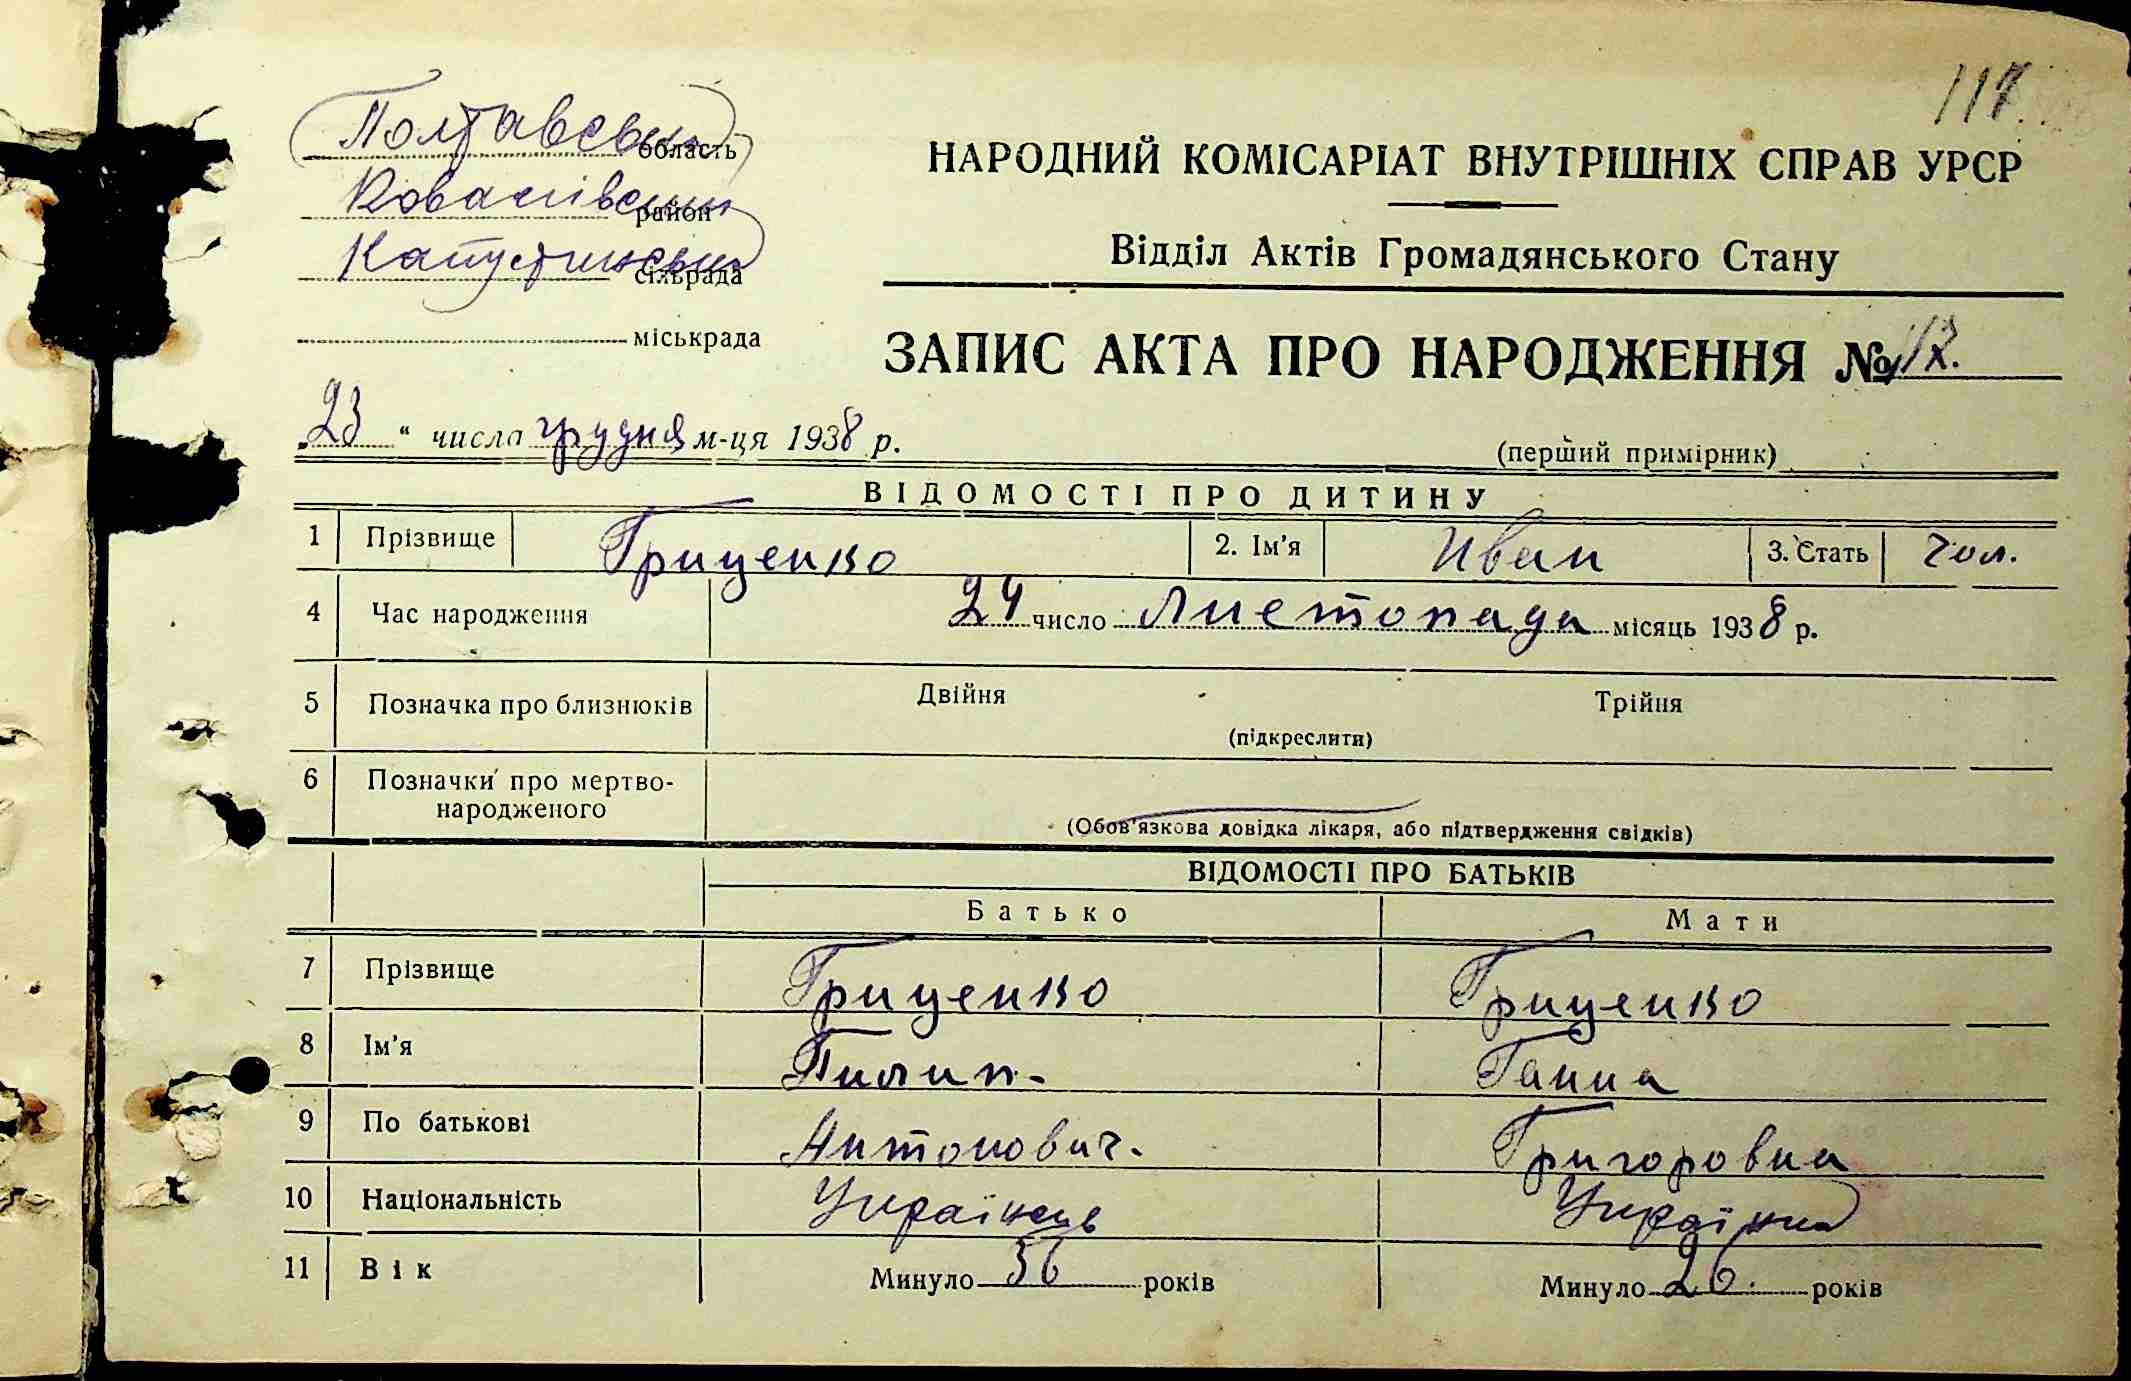 117.
Полтавська область
Ковалівський район
Капустинська сільрада
міськрада
НАРОДНИЙ КОМІСАРІАТ ВНУТРІШНІХ СПРАВ УРСР
Відділ Актів Громадянського Стану
ЗАПИС АКТА ПРО НАРОДЖЕННЯ №
„23“ числа грудня м-ця 1938 р.
(перший примірник)
ВІДОМОСТІ ПРО ДИТИНУ
1 Прізвище Гриценко 2. Ім'я Иван 3. Стать чол.
4 Час народження 24 число Листопада місяць 1938 р.
5 Позначка про близнюків Двійня Трійня
(підкреслити)
6 Позначки про мертво-
народженого
(Обов'язкова довідка лікаря, або підтвердження свідків)
ВІДОМОСТІ ПРО БАТЬКІВ
Батько Мати
7 Прізвище Гриценко Гриценко
8 Ім'я Пилип. Ганна
9 По батькові Антонович. Григоровна
10 Національність Українець Українка
11 Вік Минуло 36 років Минуло 26. років